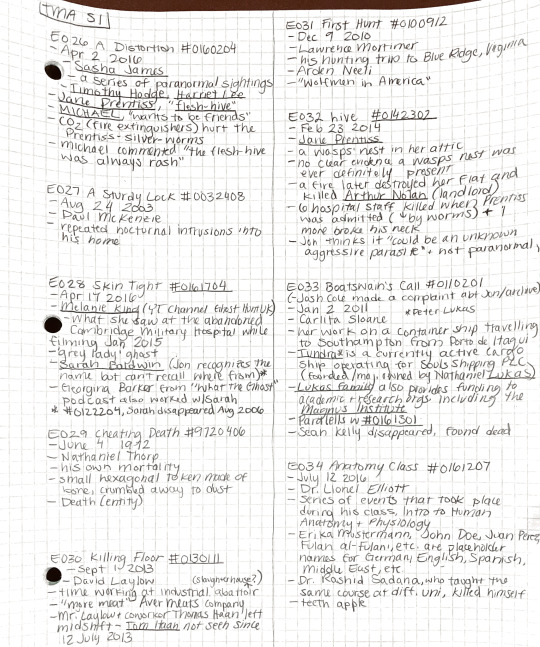 TMA S1
E026 A Distortion #0160204
- Apr 2 2016
- Sasha James
- a series of paranormal sightings
- Timothy Hodge, Harriet Lee
- Jane Prentiss, "flesh-hive"
- MICHAEL, "wants to be friends"
- CO2 (fire extinguishers) hurt the
Prentiss-silver-worms
- michael commented "the flesh-hive
was always rash"
E027 A Sturdy Lock #0032408
- Aug 24 2003
- Paul McKenzie
- repeated nocturnal intrusions into
his home
E028 Skin Tight #0161704
- Apr 17 2016
- Melanie King (YT channel Ghost Hunt UK)
- What she saw at the abandoned
Cambridge Military Hospital while
filming Jan 2015
- "grey lady" ghost
- Sarah Baldwin (Jon recognizes the
name but can't recall where from)*
- Georgina Barker from "What the Ghost"
podcast also worked w/Sarah
* #0122204, Sarah disappeared Aug 2006
E029 Cheating Death #9720406
- June 4 1972
- Nathaniel Thorp
- his own mortality
- small hexagonal token made of
bone, crumbled away to dust
- Death (entity)
E030 Killing Floor #0130111
- Sept 1 2013
- David Laylow (slaughterhouse?)
- time working at industrial abattoir
- "more meat" Aver Meats company
- Mr. Laylow + coworker Thomas Haan left
midshift - Tom Haan not seen since
12 July 2013
E031 First Hunt #0100912
- Dec 9 2010
- Lawrence Mortimer
- his hunting trip to Blue Ridge, Virginia
- Arden Neeli
- "Wolfmen in America"
E032 hive #0142302
- Feb 23 2014
- Jane Prentiss
- a wasps' nest in her attic
- no clear evidence a wasps nest was
ever definitely present
- a fire later destroyed her flat and
killed Arthur Nolan (landlord)
- 6 hospital staff killed when Prentiss
was admitted (↓by worms) + 1
more broke his neck
- Jon thinks it "could be an unknown
aggressive parasite" + not paranormal
E033 Boatswain's Call #0110201
(- Josh Cole made a complaint abt Jon/archive)
- Jan 2 2011 *Peter Lukas
- Carlita Sloane
- her work on a container ship travelling
to Southampton from Porto de Itaqui
- Tundra* is a currently active cargo
ship operating for Solus Shipping PLC
(founded/maj. owned by Nathaniel Lukas)
- Lukas family also provides funding to
academic + research orgs including the
Magnus Institute
- Parallels w #0161301
- Sean Kelly disappeared, found dead
E034 Anatomy Class #0161207
- July 12 2016
- Dr. Lionel Elliott
- Series of events that took place
during his class, Intro to Human
Anatomy + Physiology
- Erika Mustermann, John Doe, Juan Perez,
Fulan al-Fulani, etc. are placeholder
names for German, English, Spanish,
middle East, etc.
- Dr. Rashid Sadana, who taught the
same course at diff. uni, killed himself
- teeth apple